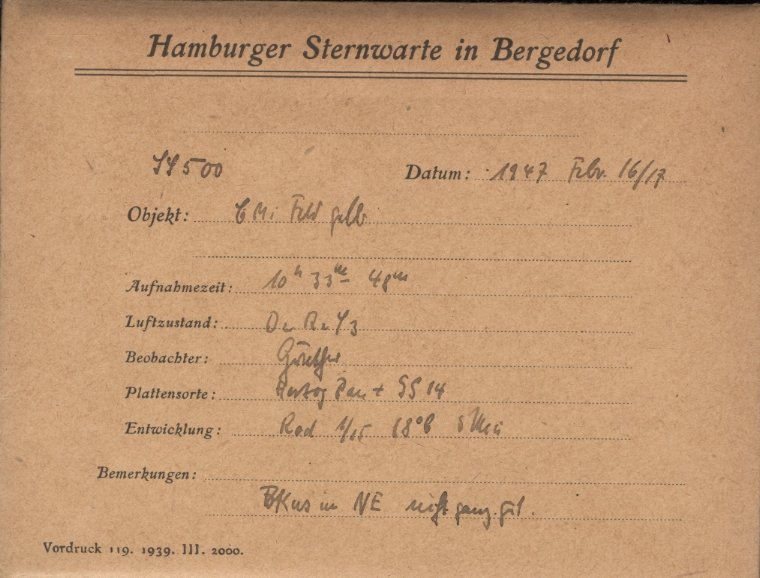 Hamburger Sternwarte in Bergedorf
500
Datum: 1947 Febr. 16/17
Objekt: Feld gelb
Aufnahmezeit: 10h 33m – 48m
Luftzustand: 3
Beobachter:
Plattensorte: Pan + GG 14
Entwicklung: Rod 1/25 18° 6 Min
Bemerkungen:
in NE nicht ganz gut.
Vordruck 119. 1939. III. 2000.